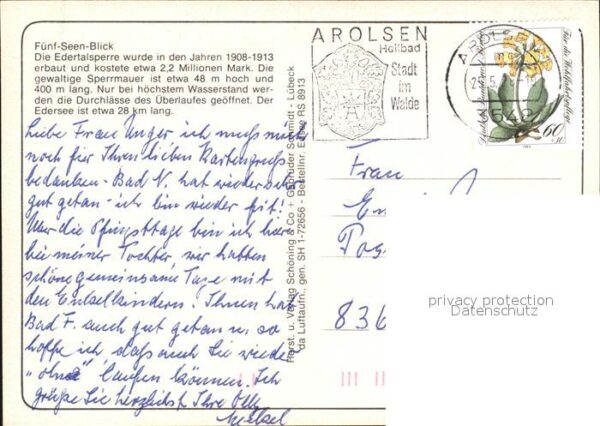 Fünf-Seen-Blick
Die Edertalsperre wurde in den Jahren 1908-1913
erbaut und kostete etwa 2,2 Millionen Mark. Die
gewaltige Sperrmauer ist etwa 48 m hoch und
400 m lang. Nur bei höchstem Wasserstand wer-
den die Durchlässe des Überlaufes geöffnet. Der
Edersee ist etwa 28 km lang.
Liebe Frau Unger ich muß mich
noch für Ihren lieben Kartengruß
bedanken - Bad N. hat wieder sehr
gut getan - ich bin wieder fit!
Über die Pfingsttage bin ich hier
bei meiner Tochter, wir hatten
schöne gemeinsame Tage mit
den Enkelkindern. Ihnen hat
Bad F. auch gut getan u. so
hoffe ich, daß auch Sie wieder
"ohne" laufen können. Ich
grüße Sie herzlichst Ihre
Horst. u. Verlag Schöning & Co + Gebrüder Schmidt - Lübeck
da Luftaufn., gen. SH 1-72656 - Bestellnr. Edsee RS 8913
AROLSEN
Heilbad
Stadt
im
Walde
AROLSEN
Für die Wohlfahrtspflege
60
Frau
836
privacy protection
Datenschutz